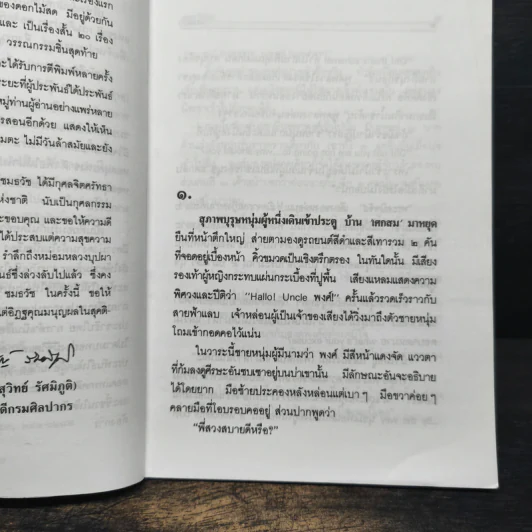 ของดอกไม้สด มีอยู่ด้วยกัน
และ เป็นเรื่องสั้น ๒๐ เรื่อง
วรรณกรรมชิ้นสุดท้าย
ะได้รับการตีพิมพ์หลายครั้ง
ระยะที่ผู้ประพันธ์ได้ประพันธ์
หมู่ท่านผู้อ่านอย่างแพร่หลาย
รสอนอีกด้วย แสดงให้เห็น
มตะ ไม่มีวันล้าสมัยและยัง
ชมธวัช ได้มีกุศลจิตศรัทธา
ห่งชาติ นับเป็นกุศลกรรม
ะขอบคุณ และขอให้ความดี
ได้ประสบแต่ความสุขความ
รำลึกถึงหม่อมหลวงบุปผา
นธ์ซึ่งล่วงลับไปแล้ว ซึ่งคง
ชมธวัช ในครั้งนี้ ขอให้
ต่อิฏฐคุณมนุญผลในสุคติ-
สุวิทย์ รัศมิภูติ)
ดีกรมศิลปากร
๑.
สุภาพบุรุษหนุ่มผู้หนึ่งเดินเข้าประตู บ้าน 'เศกสม' มาหยุด
ยืนที่หน้าตึกใหญ่ ส่ายตามองดูรถยนต์สีดำและสีเทารวม ๒ คัน
ที่จอดอยู่เบื้องหน้า คิ้วขมวดเป็นเชิงตรึกตรอง ในทันใดนั้น มีเสียง
รองเท้าผู้หญิงกระทบแผ่นกระเบื้องที่ปูพื้น เสียงแหลมแสดงความ
พิศวงและปีติว่า "Hallo! Uncle พงศ์" ครั้นแล้วรวดเร็วราวกับ
สายฟ้าแลบ เจ้าหล่อนผู้เป็นเจ้าของเสียงได้วิ่งมาถึงตัวชายหนุ่ม
โถมเข้ากอดคอไว้แน่น
ในวาระนี้ชายหนุ่มผู้มีนามว่า พงศ์ มีสีหน้าแดงจัด แววตา
ที่ก้มลงดูศีรษะอันซบเซาอยู่บนบ่าเขานั้น มีลักษณะอันจะอธิบาย
ได้โดยยาก มือซ้ายประคองหลังหล่อนแต่เบา ๆ มือขวาค่อย ๆ
คลายมือที่โอบรอบคออยู่ ส่วนปากพูดว่า
"พี่สวงสบายดีหรือ?"